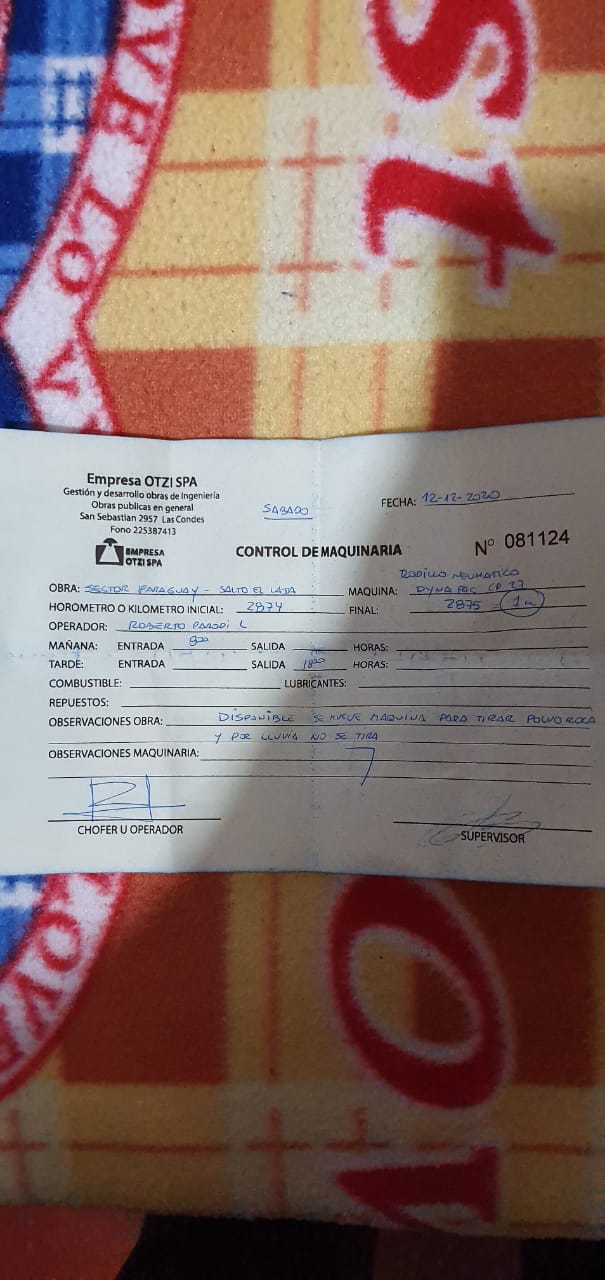 ST
OVE LO V
Empresa OTZI SPA
Gestión y desarrollo obras de Ingeniería
Obras publicas en general
San Sebastian 2957 Las Condes
Fono 225387413
SABADO
FECHA: 12-12-2020
EMPRESA
OTZI SPA
CONTROL DE MAQUINARIA
Nº 081124
RODILLO NEUMATICO
OBRA: SECTOR PARAGUAY - SALTO EL LAJA MAQUINA: DYNAPAC CP 27
HOROMETRO O KILOMETRO INICIAL: 2874 FINAL: 2875 =
OPERADOR: ROBERTO PARODI L
MAÑANA: ENTRADA 800 SALIDA HORAS:
TARDE: ENTRADA SALIDA HORAS:
COMBUSTIBLE: LUBRICANTES:
REPUESTOS:
OBSERVACIONES OBRA: DISPONIBLE SE MUEVE MAQUINA PARA TIRAR POLVO ROCA
Y POR LLUVIA NO SE TIRA
OBSERVACIONES MAQUINARIA:
CHOFER U OPERADOR
SUPERVISOR
LO
OVE